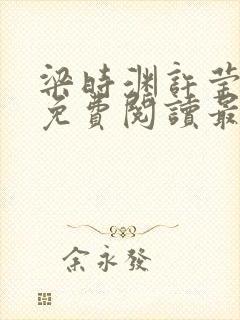 梁時渊許莹
免費閱讀最
余永發